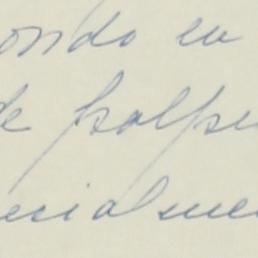 ondo en
de palpu
ecialmen